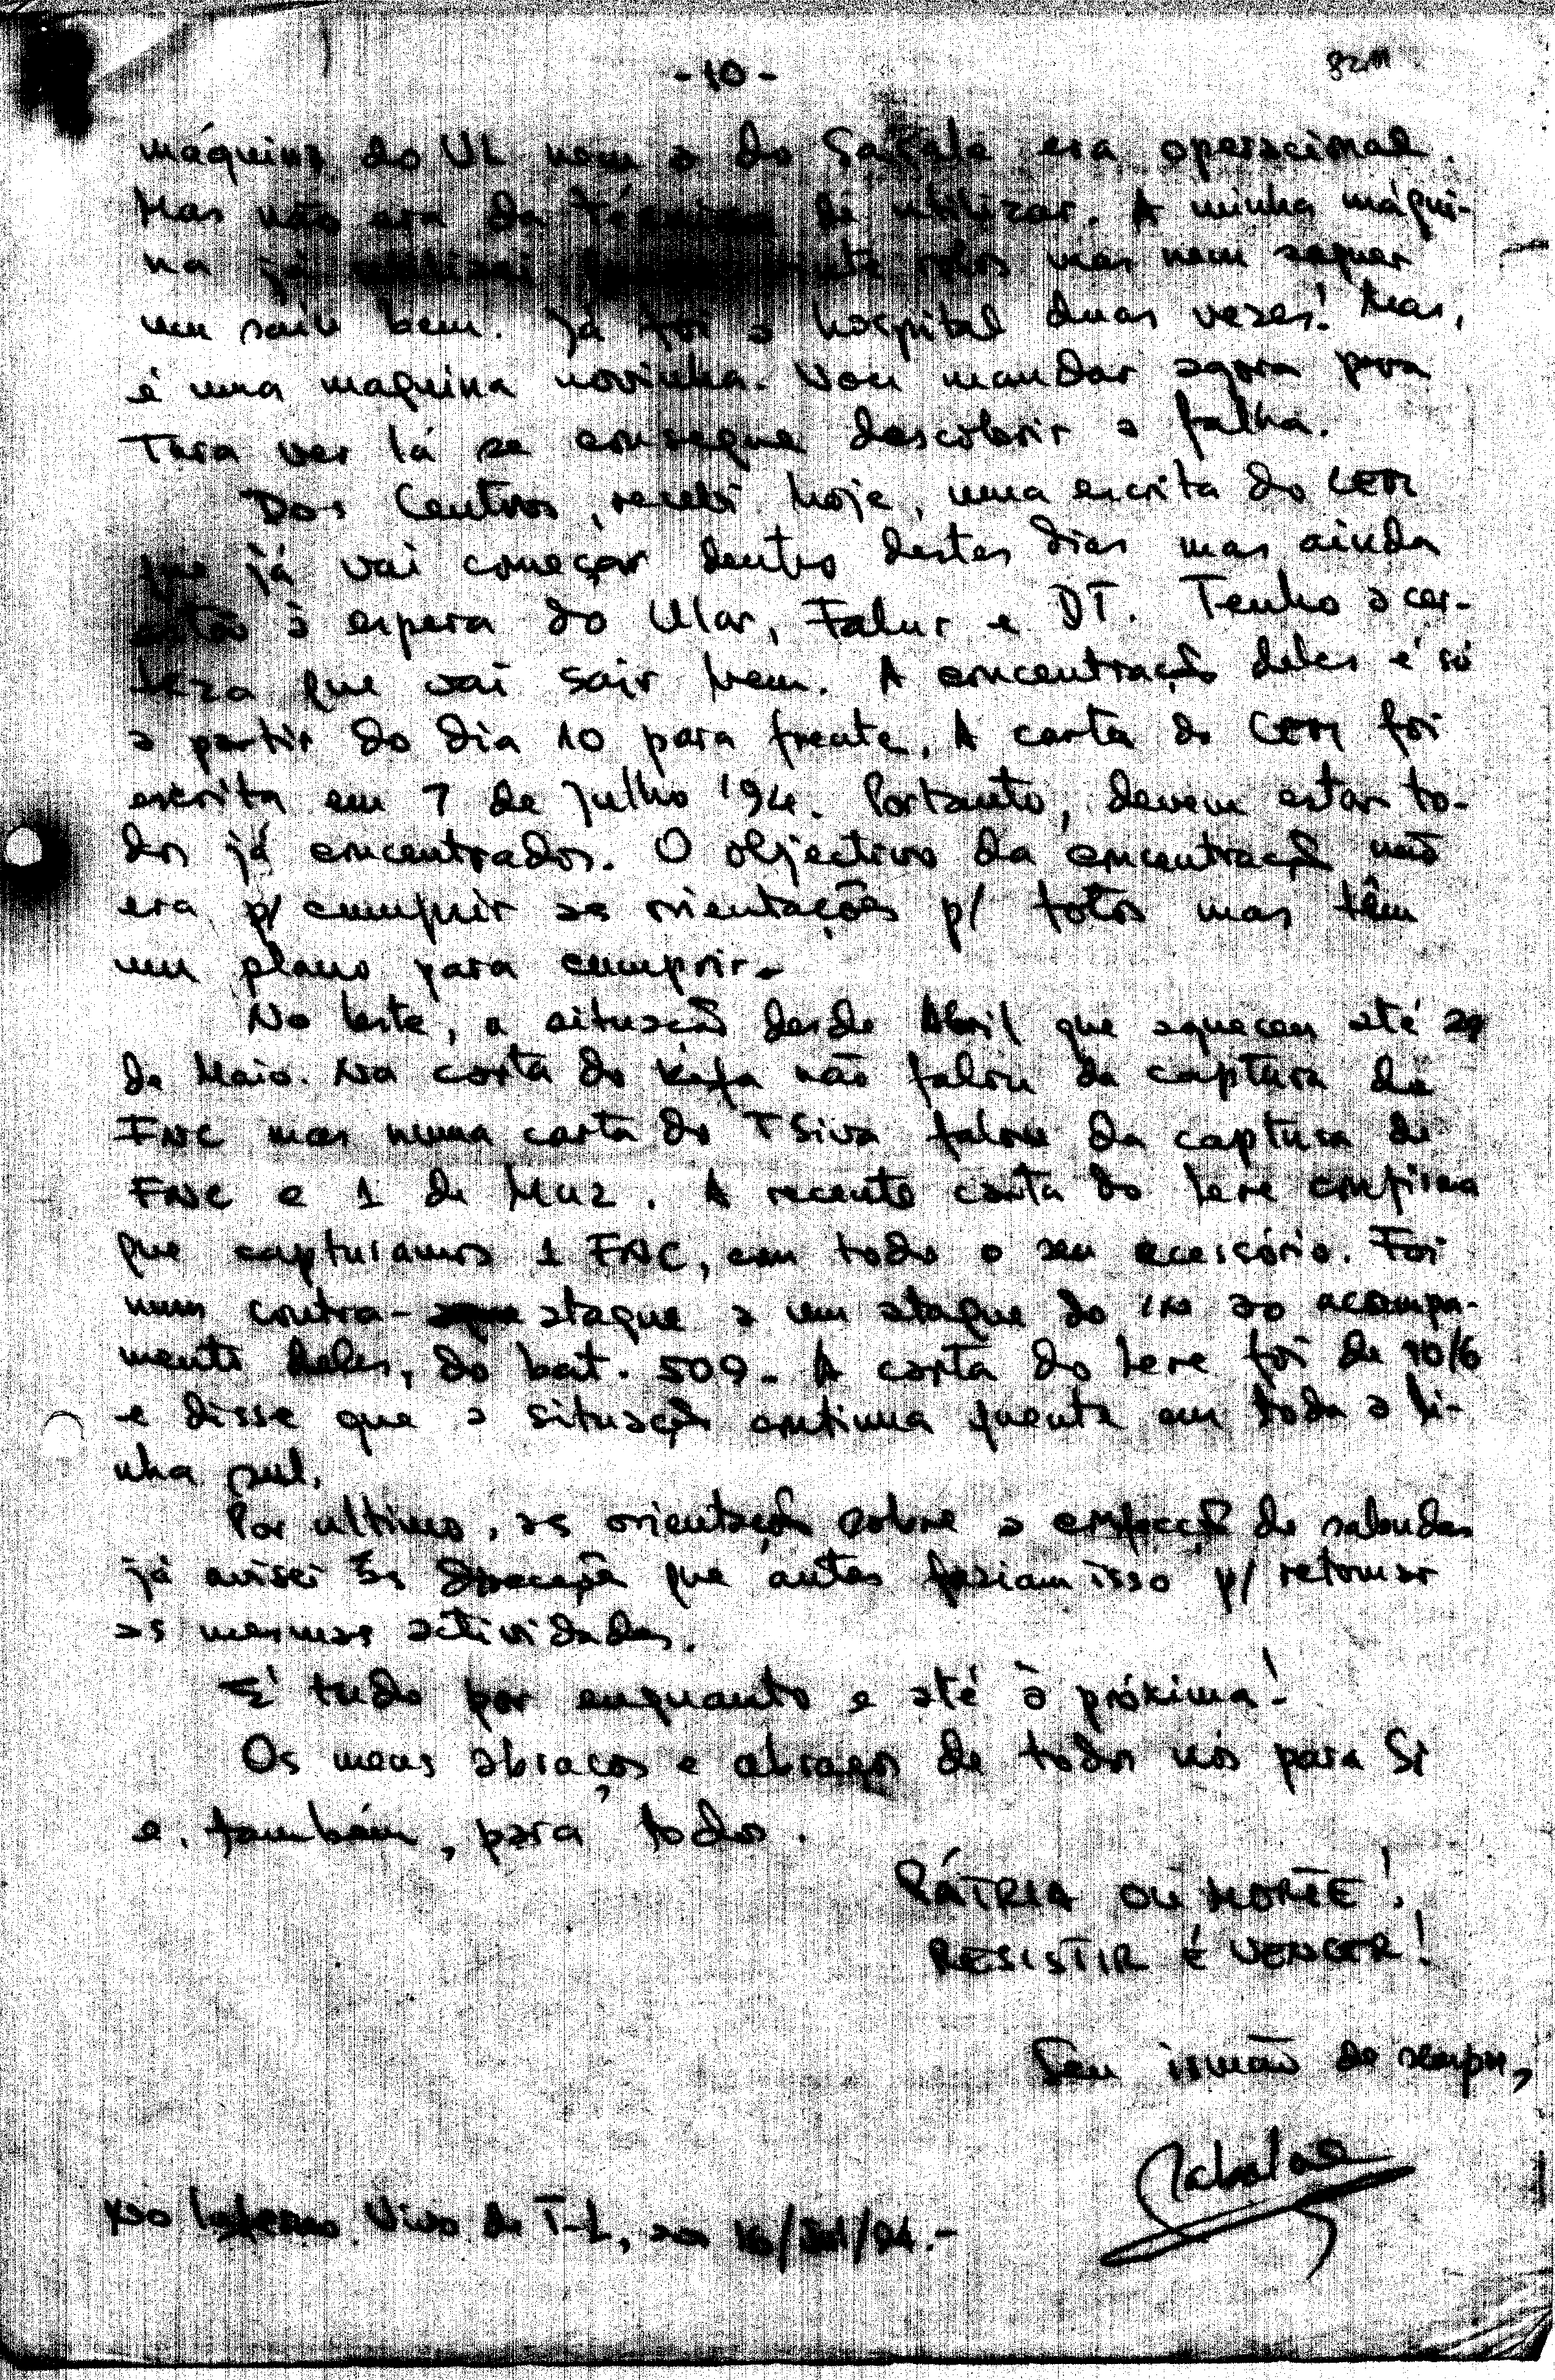 -10-
máquina do UL nem a do Sabalae era operacional.
Mas não era da técnica de utilizar. A minha máqui-
na já utilizei rolos mas nem sequer
um saíu bem. Já foi a hospital duas vezes! Mas,
é uma maquina novinha. Vou mandar agora para
Tara ver lá se consegue descobrir a falha.
Dos Centros, recebi hoje, uma escrita do CEM
que já vai começar dentro destes dias mas ainda
estão à espera do Ular, Falur e DT. Tenho a cer-
teza que vai sair bem. A concentração deles é só
a partir do dia 10 para frente. A carta do CEM foi
escrita em 7 de Julho '94. Portanto, devem estar to-
dos já concentrados. O objectivo da concentração não
era p/ cumprir as orientações p/ fotos mas têm
um plano para cumprir.-
No leste, a situação desde Abril que aqueceu até 29
de Maio. Na carta do não falou da captura de
FNC mas numa carta do falou da captura de
FNC e 1 de M. A recente carta do Lere confirma
que capturamos 1 FNC, com todo o seu acessório. Foi
num contra- ataque a um ataque do in ao acampa-
mento deles, do bat. 509. A carta do Lere foi de 10/6
e disse que a situação continua quente em toda a li-
nha sul.
Por ultimo, as orientação sobre a de
já avisei às que antes faziam isso p/ retomar
as mesmas actividades.
É tudo por enquanto e até à próxima!
Os meus abraços e abraços de todos nós para Si
e, também, para todos.
PÁTRIA OU MORTE!
RESISTIR É VENCER!
Seu irmão de sempre,
Sabalae
No Inferno Vivo de T-L, aos 16/Jul/94.-